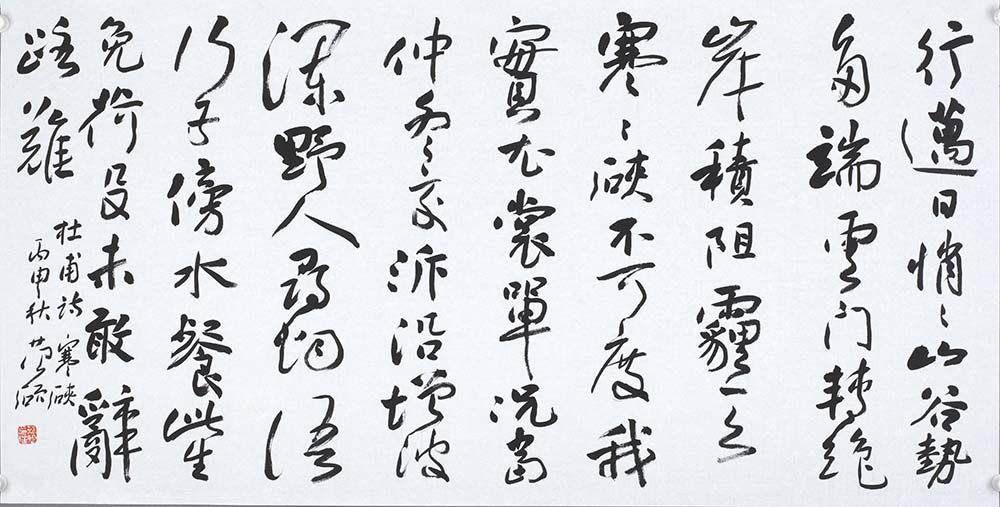 行邁日悄〻山谷勢
多端雲門轉絕
岸積阻霾天
寒〻硤不可度我
實衣裳單況當
仲冬交泝沿增波
瀾野人尋煙語
行子傍水餐此生
免荷殳未敢辭
路難
杜甫詩寒硤
丙申秋